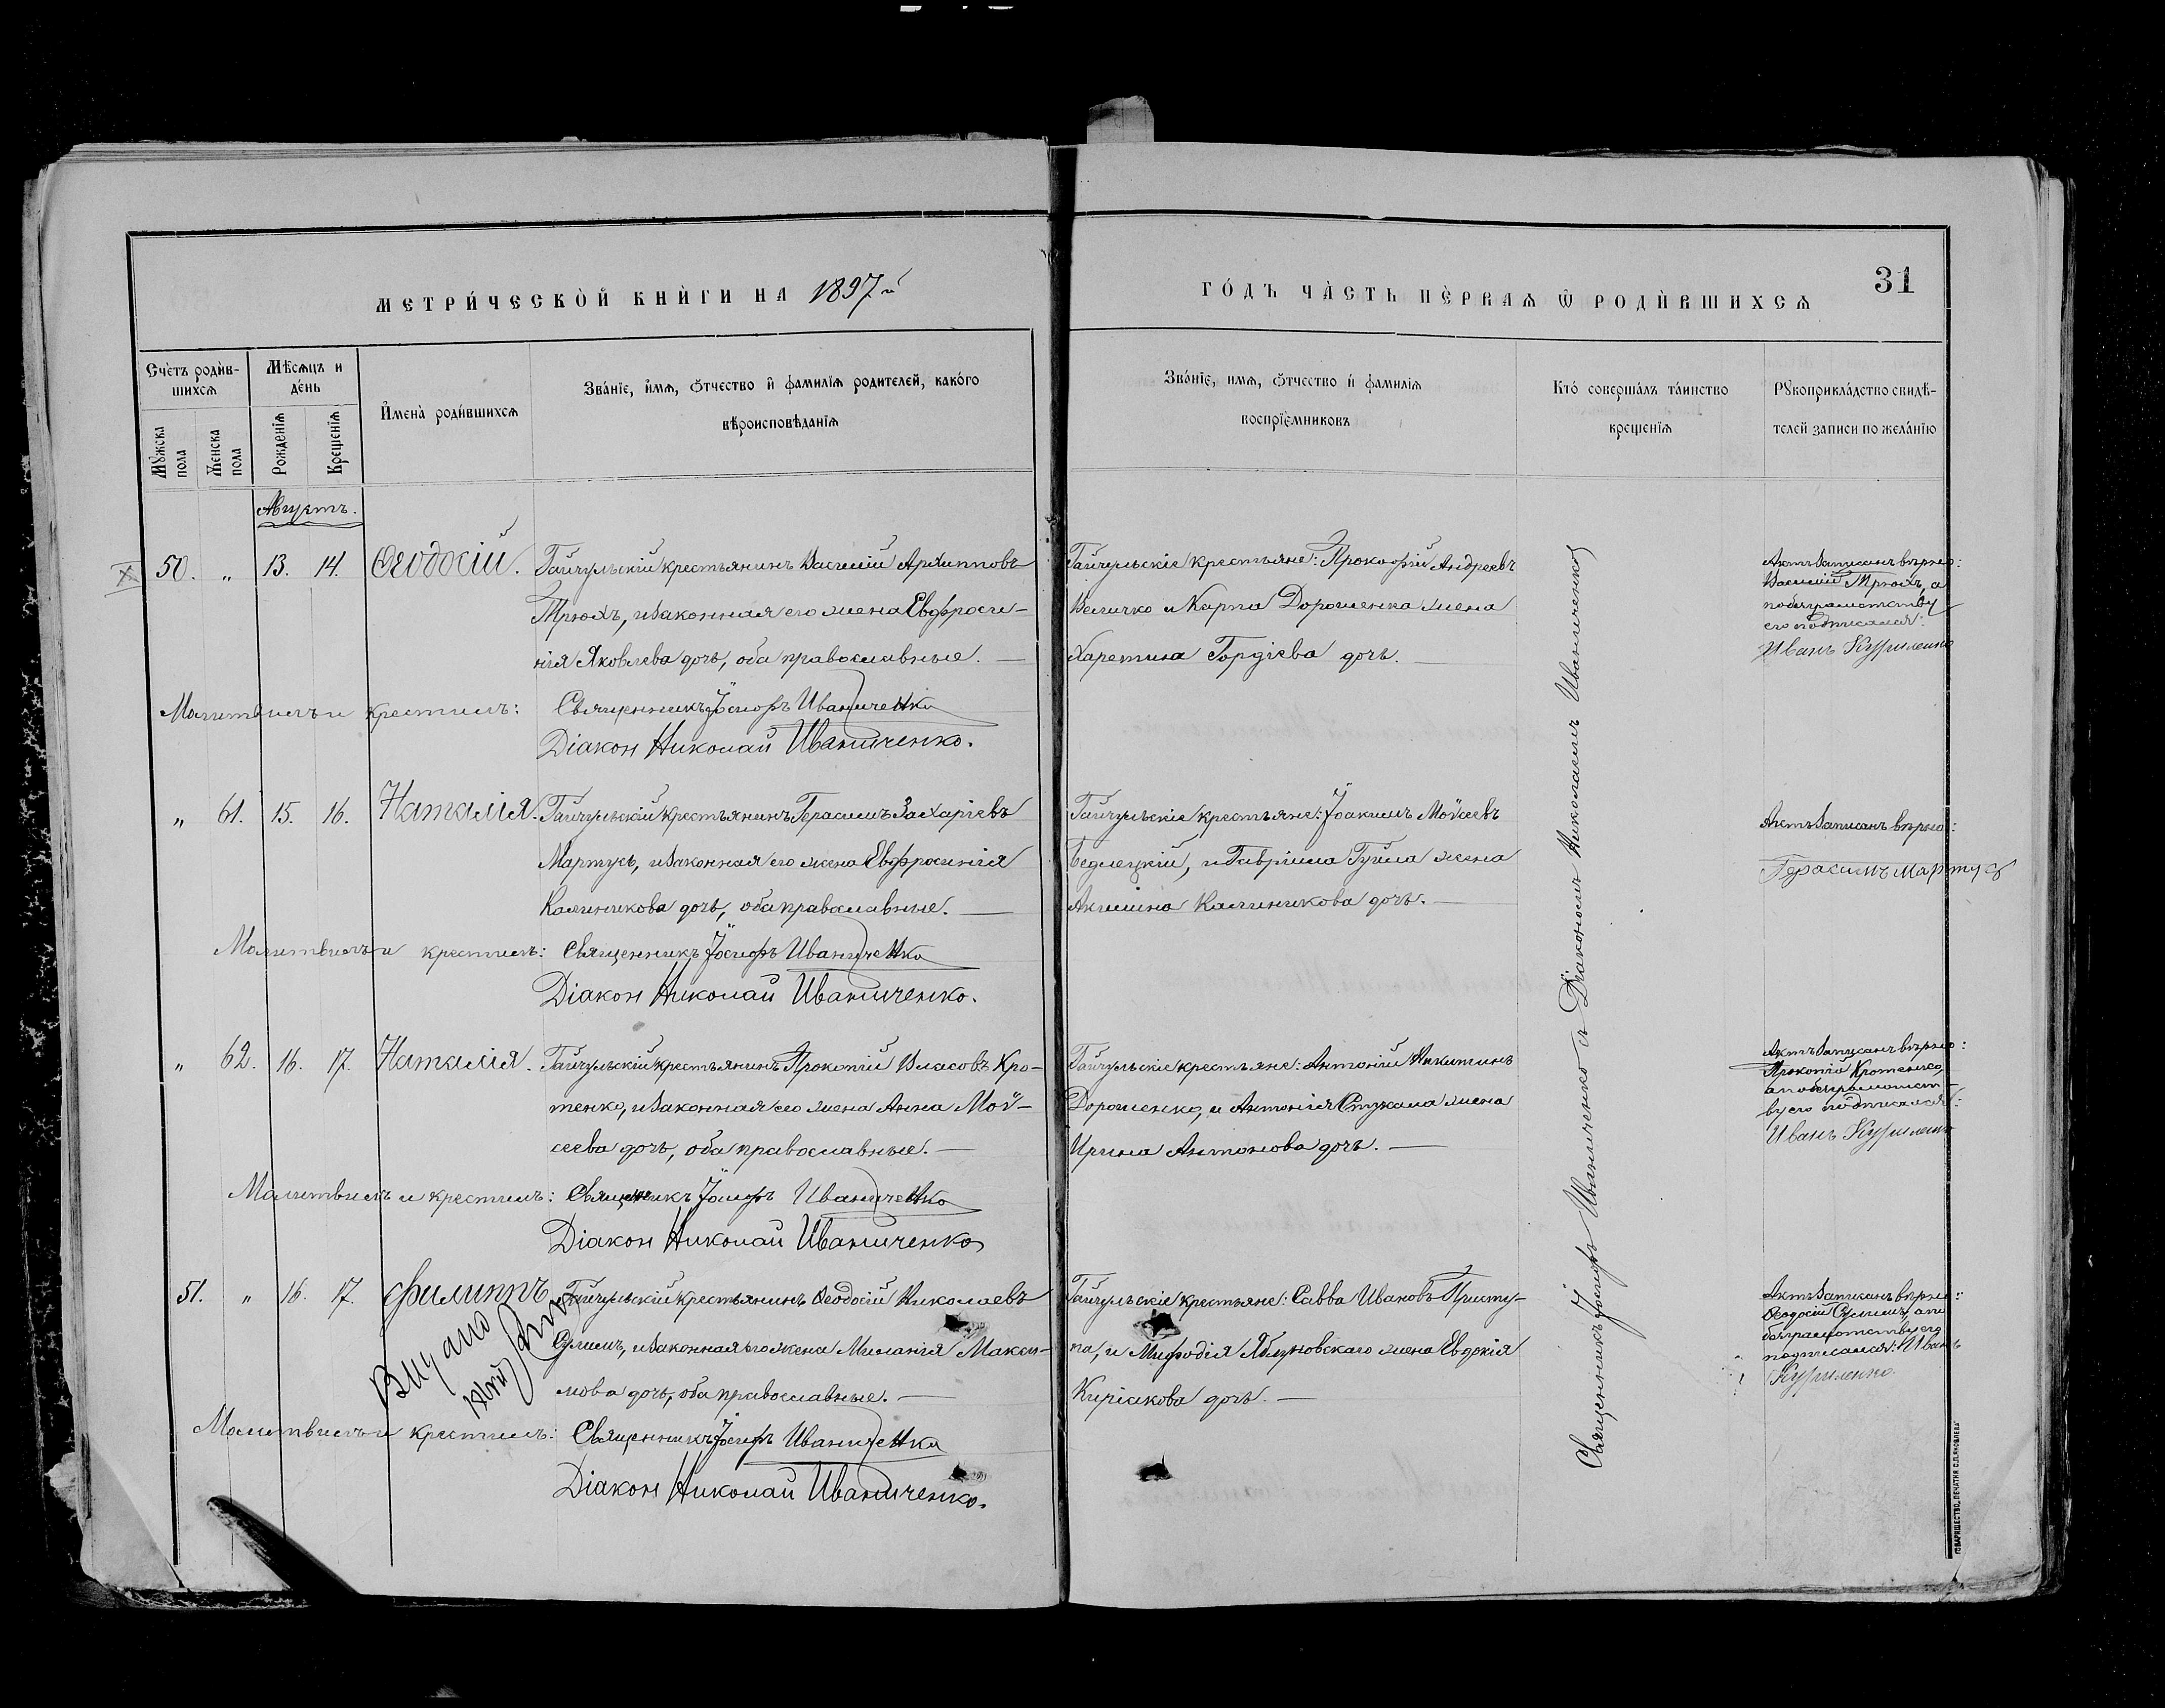 МЕТРИ́ЧЕСКОЙ КНИ́ГИ НА 1897й
ГО́ДЪ ЧА́СТЬ ПЕ́РВАѦ Ѿ РОДИ́ВШИХСѦ
31
Сче́тъ роди́в-
шихсѧ
Мѣ́сѧцъ и
де́нь
Мꙋ́жска
пола
Же́нска
пола
Рожде́нїѧ
Креще́нїѧ
И҆мена̀ роди́вшихсѧ
Зва́нїе, и҆́мѧ, ѻ҆́тчество и҆ фамилїѧ родителей, како́гѡ
вѣроисповѣданїѧ
Зва́нїе, имѧ, ѻ҆́тчество и҆ фамилїѧ
воспрїе́мниковъ
Кто̀ соверша́лъ та́инство
креще́нїѧ
Рꙋкоприкла́дство свидѣ́-
телей записи по жела́нїю
Августъ.
50. „ 13. 14. Ѳеодосій.
Гайчульскій крестьянинъ Василій Архипповъ
Трюхъ, и законная его жена Евфроси-
нія Яковлева дочь, оба православные.
Гайчульскіе крестьяне: Прокофій Андреевъ
Величко и Карпа Дорошенка жена
Харетина Гордіева дочь.
Актъ записанъ вѣрно:
Василій Трюхъ, а
по безграмотству
его подписался:
Иванъ Куриленко
Молитвилъ и крестилъ: Священникъ Іосифъ Иваниченко
Діакон Николай Иваниченко.
„ 61. 15. 16. Наталія.
Гайчульскій крестьянинъ Герасимъ Захаріевъ
Мартусь, и законная его жена Евфросинія
Калиникова дочь, оба православные.
Гайчульскіе крестьяне: Іоакимъ Мойсеевъ
Бедлецкій, и Гавріила Гуйла жена
Акилина Калиникова дочь.
Актъ записанъ вѣрно:
Герасимъ Мартусь
Молитвилъ и крестилъ: Священникъ Іосифъ Иваниченко
Діакон Николай Иваниченко.
„ 62. 16. 17. Наталія.
Гайчульскій крестьянинъ Прокопій Власовъ Кро-
тенко, и законная его жена Анна Мой-
сеева дочь, оба православные.
Гайчульскіе крестьяне: Антоній Никитинъ
Дорошенко, и Антонія Стукала жена
Ирина Антонова дочь.
Актъ записанъ вѣрно:
Прокопій Кротенко,
а по безграмотст-
ву его подписался:
Иванъ Куриленко
Молитвилъ и крестилъ: Священникъ Іосифъ Иваниченко
Діакон Николай Иваниченко
51. „ 16. 17. Филиппъ
Гайчульскій крестьянинъ Ѳеодосій Николаевъ
Сулимъ, и законная его жена Миланія Макси-
мова дочь, оба православные.
Гайчульскіе крестьяне: Савва Ивановъ Присту-
па, и Мифодія Яблуновскаго жена Евдокія
Киріакова дочь.
Актъ записанъ вѣрно:
Ѳеодосій Сулимъ, а по
безграмотству его
подписался: Иванъ
Куриленко.
Молитвилъ и крестилъ: Священникъ Іосифъ Иваниченко
Діакон Николай Иваниченко.
Священникъ Іосифъ Иваниченко съ Діакономъ Николаемъ Иваниченко